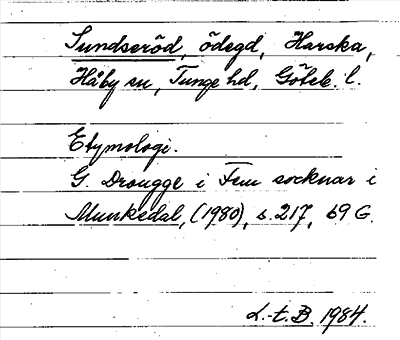 Sundseröd, ödegd, Harska,
Håby sn, Tunge hd, Göteb. l.
Etymologi.
G. Drougge i Fem socknar i
Munkedal, (1980), s. 217, 69 G.
L.-t. B. 1984.